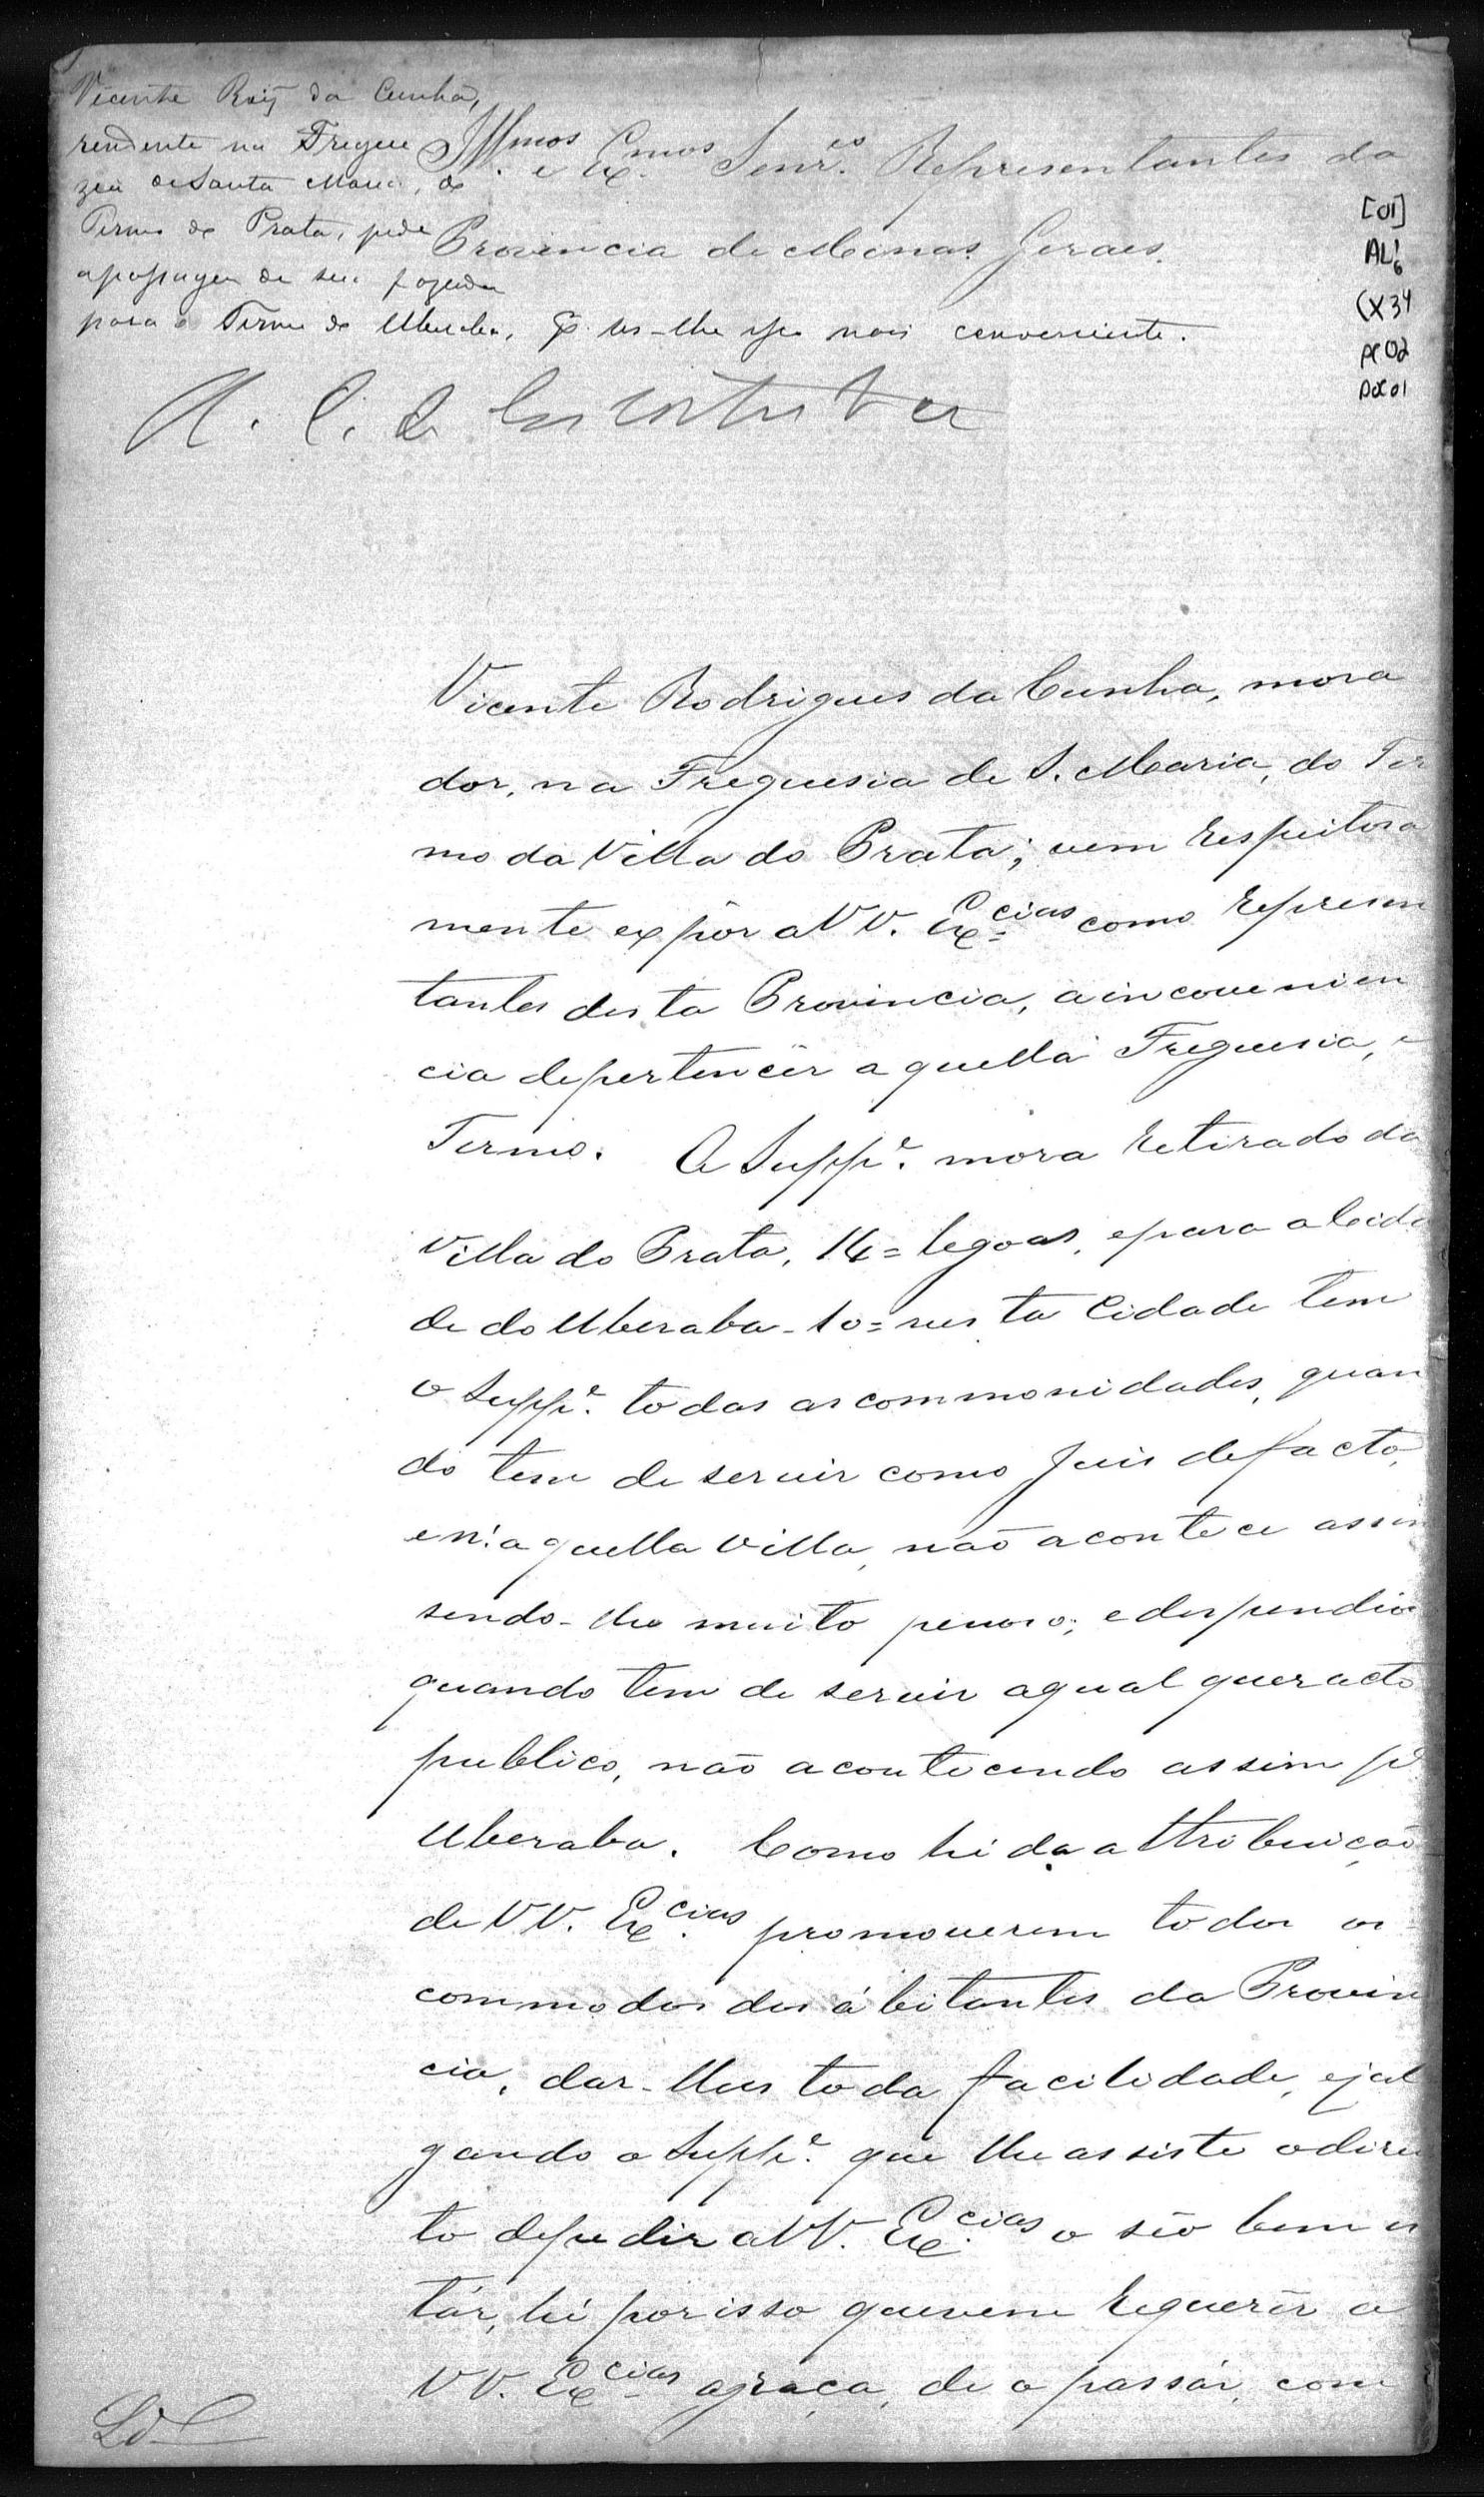 Vicente Roiz da Cunha,
rendente na Fregue
zia de Santa Maria, do
Termo do Prata, pede
a passagem de sua fazenda
para o Termo de Uberaba, p. ser-lhe mais conveniente.
Illmos. e Exmos. Senres. Representantes da
Provincia de Minas Geraes.
[01]
AL!6
CX34
PC02
DOC01
A. C. de
Vicente Rodrigues da Cunha, mora
dor, na Freguesia de S. Maria, do Ter
mo da Villa do Prata; vem respeitosa
mente expôr a VV. Excias como represen
tantes desta Provincia, a inconvenien
cia de pertencêr aquella Freguesia, e
Termo. O Suppe. mora retirado da
Villa do Prata, 14= legoas, e para a Cida
de do Uberaba - 10= nesta Cidade tem
o Suppe. todas as commonidades, quan
do tem de servir como Juis de facto,
e n'aquella Villa, não acontece assim
sendo-lhe muito penoso; e despendioso
quando tem de servir a qual quer acto
publico, não acontecendo assim pa.
Uberaba. Como hé da attribuição
de VV. Excias. promoverem todos os
commodos dos ábitantes da Provin
cia, dar-lhes toda facilidade, e jul
gando o Suppe. que lhe assiste o direi
to de pedir a VV. Excias. o seo bem es
tár, hé por isso que vem requerêr a
VV. Excias a graça, de o passár, com